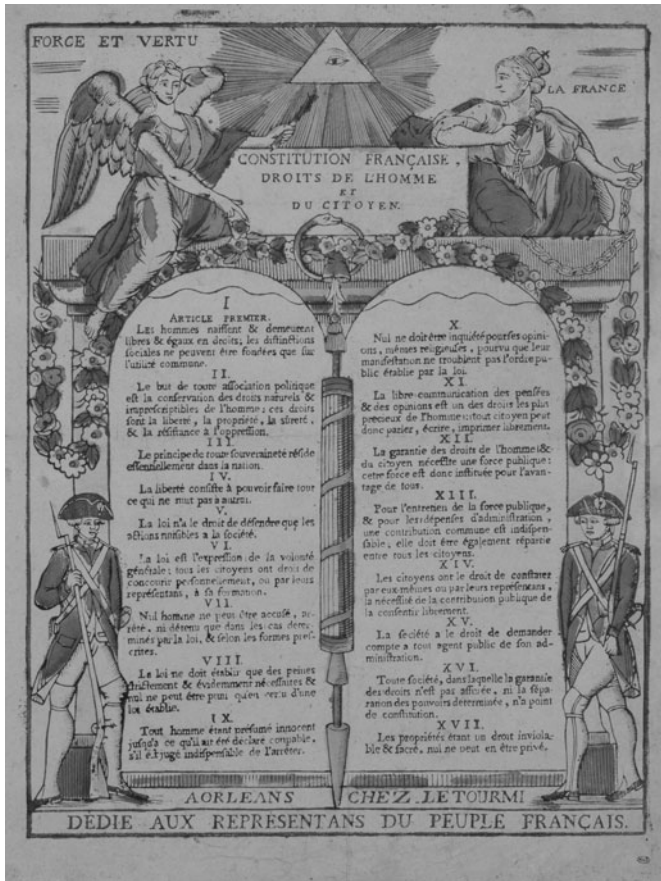 FORCE ET VERTU
LA FRANCE
CONSTITUTION FRANÇAISE,
DROITS DE L'HOMME
ET
DU CITOYEN.
I
ARTICLE PREMIER.
Les hommes naissent & demeurent
libres & égaux en droits; les distinctions
sociales ne peuvent être fondées que sur
l'utilité commune.
II.
Le but de toute association politique
est la conservation des droits naturels &
imprescriptibles de l'homme; ces droits
sont la liberté, la propriété, la sûreté,
& la résistance à l'oppression.
III.
Le principe de toute souveraineté réside
essentiellement dans la nation.
IV.
La liberté consiste à pouvoir faire tout
ce qui ne nuit pas à autrui.
V.
La loi n'a le droit de défendre que les
actions nuisibles a la société.
VI.
La loi est l'expression de la volonté
générale; tous les citoyens ont droit de
concourir personnellement, ou par leurs
représentans, à sa formation.
VII.
Nul homme ne peut être accusé, ar-
rêté, ni détenu que dans les cas deter-
minés par la loi, & selon les formes pres-
crites.
VIII.
La loi ne doit établir que des peines
strictement & évidemment nécessaires &
nul ne peut être puni qu'en vertu d'une
loi établie.
IX.
Tout homme étant présumé innocent
jusqu'a ce qu'il ait été déclaré coupable,
s'il est jugé indispensable de l'arrêter.
X.
Nul ne doit être inquiété pour ses opini-
ons, mêmes religieuses, pourvu que leur
manifestation ne troublent pas l'ordre pu-
blic établie par la loi.
XI.
La libre communication des pensées
& des opinions est un des droits les plus
précieux de l'homme: tout citoyen peut
donc parler, écrire, imprimer librement.
XII.
La garantie des droits de l'homme &
du citoyen nécessite une force publique:
cette force est donc instituée pour l'avan-
tage de tous.
XIII.
Pour l'entretien de la force publique,
& pour les dépenses d'administration,
une contribution commune est indispen-
sable; elle doit être également répartie
entre tous les citoyens.
XIV.
Les citoyens ont le droit de constater
par eux-mêmes ou par leurs représentans,
la nécessité de la contribution publique de
la consentir librement.
XV.
La société a le droit de demander
compte a tout agent public de son ad-
ministration.
XVI.
Toute société, dans laquelle la garantie
des droits n'est pas assurée, ni la sépa-
ration des pouvoirs determinée, n'a point
de constitution.
XVII.
Les propriétés étant un droit inviola-
ble & sacré, nul ne peut en être privé.
A ORLEANS CHEZ LETOURMI
DÉDIE AUX REPRÉSENTANS DU PEUPLE FRANÇAIS.